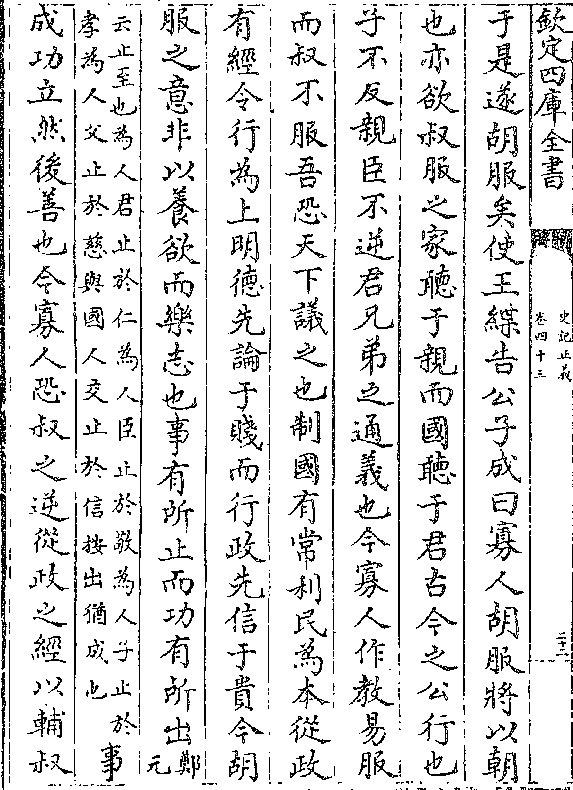 欽定四庫全書
史記正義
卷四十三
二十三
于是遂胡服矣使王緤告公子成曰寡人胡服將以朝
也亦欲叔服之家聽于親而國聽于君古今之公行也
子不反親臣不逆君兄弟之通義也今寡人作教易服
而叔不服吾恐天下議之也制國有常利民為本從政
有經令行為上明德先論于賤而行政先信于貴今胡
服之意非以養欲而樂志也事有所止而功有所出鄭元
云止至也為人君止於仁為人臣止於敬為人子止於
孝為人父止於慈與國人交止於信按出猶成也事
成功立然後善也今寡人恐叔之逆從政之經以輔叔